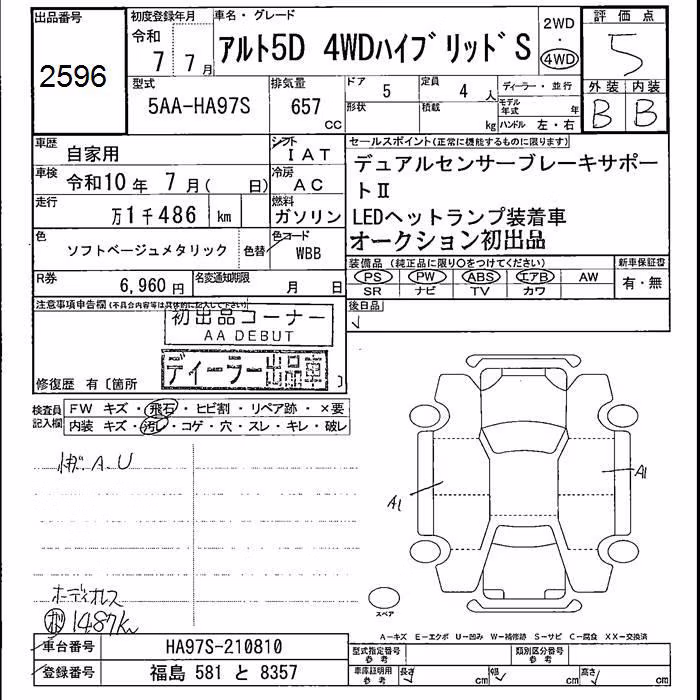 出品番号
2596
初度登録年月
令和
7 7月
車名・グレード
アルト5D 4WDハイブリッドS
2WD
・
4WD
評価点
5
外装 内装
B B
型式
5AA-HA97S
排気量
657
cc
ドア
5
定員
4人
形状
積載
kg
ディーラー・並行
モデル年式 年
ハンドル 左・右
車歴
自家用
シフト
IAT
車検
令和10年 7月( 日)
冷房
AC
走行
万1千486 km
燃料
ガソリン
色
ソフトベージュメタリック
色替
色コード
WBB
R券
6,960円
名変通知期限
月 日
セールスポイント(正常に機能するものに限ります)
デュアルセンサーブレーキサポー
トⅡ
LEDヘットランプ装着車
オークション初出品
装備品(純正品に限り○をつけてください)
PS PW ABS エアB AW
SR ナビ TV カワ
新車保証書
有・無
後日品
注意事項申告欄(不具合内容等は具体的に記入して下さい)
初出品コーナー
AA DEBUT
ディーラー出品車
修復歴 有〔箇所 〕
検査員
記入欄
FW キズ・飛石・ヒビ割・リペア跡・×要
内装 キズ・汚レ・コゲ・穴・スレ・キレ・破レ
A.U
A1
A1
ボーディオレス
1487km
スペア
A-キズ E-エクボ U-凹み W-補修跡 S-サビ C-腐食 XX-交換済
車台番号
HA97S-210810
登録番号
福島 581 と 8357
型式指定番号
参考
類別区分番号
参考
車庫証明用
参考
長さ cm
幅 cm
高さ cm